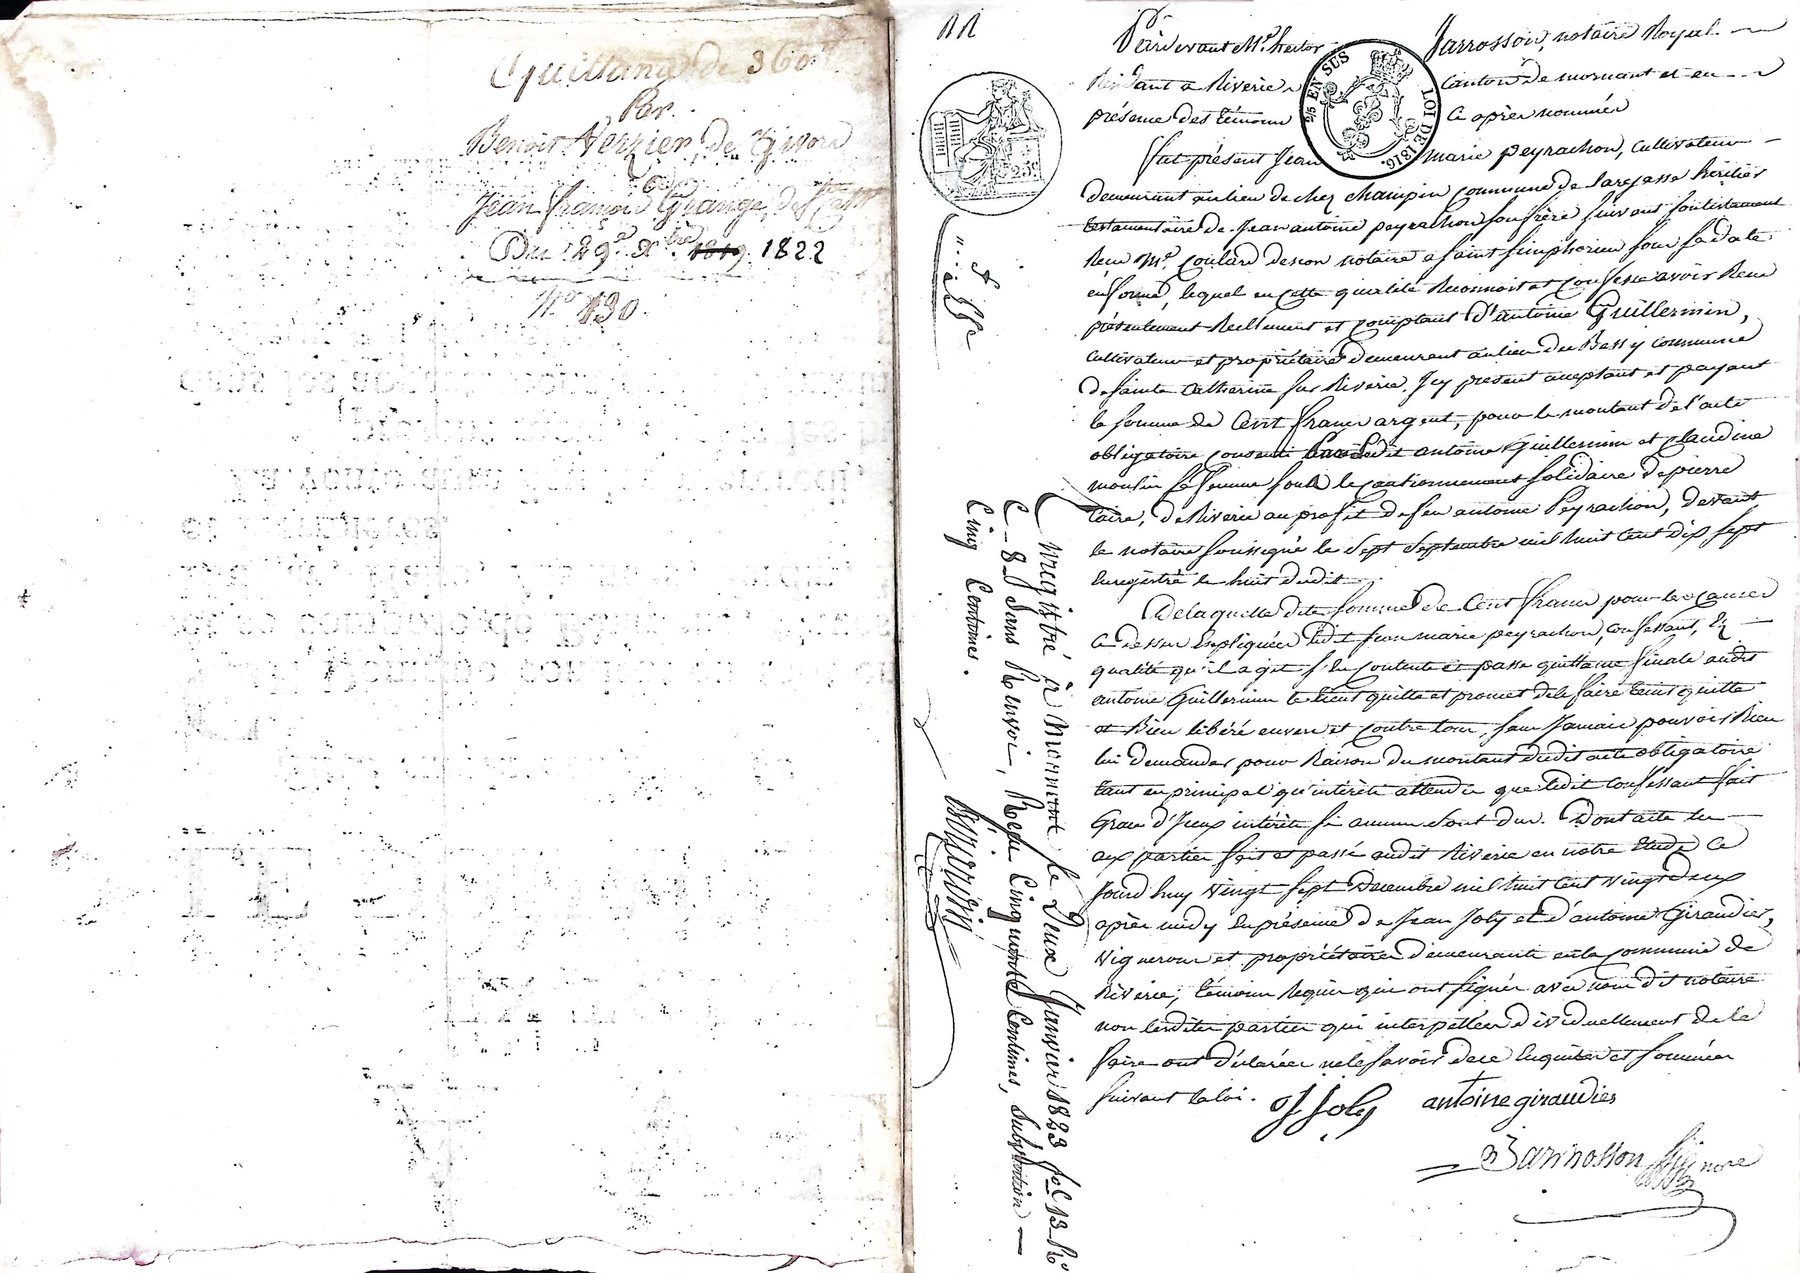 Quittance de 360 f
Par
Benoit Verzier, de Givors
a
Jean François Grange, de St
Du 29 Xbre 1819 1822
N° 130.
Pardevant Me hector Jarrosson, notaire Royal
Résidant a Riverie Canton de mornant et en
présence des témoins Ci après nommés
25 EN SUS
LOI DE 1816.
25 c
fut présent Jean marie peyrachon, cultivateur
demeurant au lieu de chez champin Commune de Larajasse héritier
testamentaire de Jean antoine peyrachon son frère suivant son testament
Reçu Me Coulard descon notaire a Saint simphorien sous sa date
en forme, lequel en cette qualité Reconnoit et Confesse avoir Reçu
présentement Reellement et Comptant d'antoine Guillermin,
cultivateur et propriétaire demeurant au lieu du Bassy commune
de sainte Catherine sur Riverie, Icy present acceptant et payant
la somme de Cent francs argent, pour le montant de l'acte
obligatoire consenti par ledit antoine Guillermin et Claudine
moulin sa femme sous le Cautionnement solidaire de pierre
Caire, de Riverie au profit de feu antoine Peyrachon, devant
le notaire soussigné le sept septembre mil huit Cent dix sept
Enregistré le huit dudit.
De laquelle dite somme de Cent francs pour les causes
Ci dessus Expliquées ledit Jean marie peyrachon, confessant, En
qualité qu'il agit s'en Contente et passe quittance finale audit
antoine Guillermin le tient quitte et promet de le faire tenir quitte
et Bien libéré envers et contre tous, sans Jamais pouvoir Rien
lui Demander pour Raison du montant dudit acte obligatoire
tant en principal qu'intérêts attendu que ledit Confessant fait
Grace d'Iceux intérêts si aucuns sont dus. Dont acte lu
aux parties fait et passé audit Riverie en notre Etude Ce
Jourd'huy vingt sept Decembre mil huit Cent vingt deux
après midy En présence de Jean Joly et d'antoine Giraudier,
Vignerons et propriétaires demeurants en la commune de
Riverie, témoins Requis qui ont signés avec nous dit notaire
non lesdites parties qui interpellées dividuellement de le
faire ont déclarées ne le savoir de ce Enquises et sommées
suivant la loi.
J Joly antoine giraudier
Jarrosson nore
Enregistré à Mornant le Deux Janvier 1823 fol 13 Ro
C 8 Sans Renvoi, Reçu Cinquante Centimes, Subvention
Cinq Centimes.